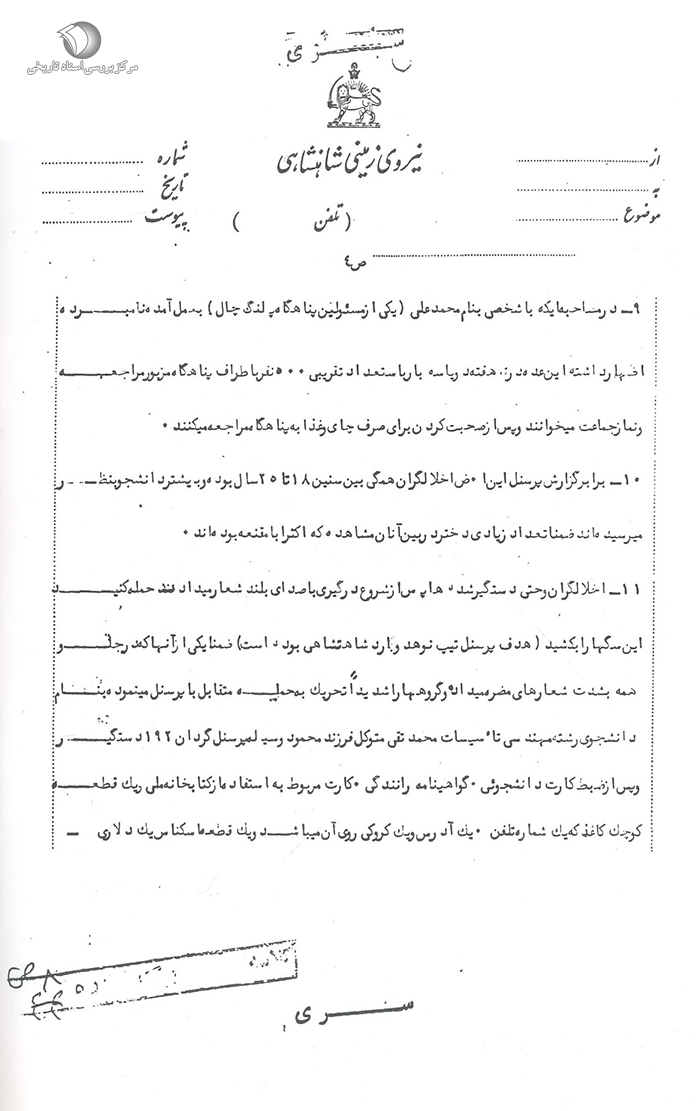 مرکز بررسی اسناد تاریخی
سری
نیروی زمینی شاهنشاهی
از
به
موضوع
شماره
تاریخ
پیوست
(تلفن )
ص٤
۹ـ در مصاحبه ایکه با شخصی بنام محمدعلی (یکی از مسئولین پناهگاه پلنگ چال) بعمل آمده نامبرده
اظهار داشته این عده در هفته دو یا سه بار با استعداد تقریبی ۵۰۰ نفر باطراف پناهگاه مزبور مراجعه
ونماز جماعت میخوانند وپس از صحبت کردن برای صرف چای وغذا به پناهگاه مراجعه میکنند ۰
۱۰ـ برابر گزارش پرسنل این اخلالگران همگی بین سنین ۱۸ تا ۲۵ سال بوده وبیشتر دانشجو بنظر
میرسیده اند ضمنا تعداد زیادی دختر دربین آنان مشاهده که اکثرا با مقنعه بوده اند ۰
۱۱ـ اخلالگران وحتی دستگیرشده ها پس از شروع درگیری با صدای بلند شعار میدادند حمله کنید
این سگها را بکشید (هدف پرسنل تیپ نوهد وگارد شاهنشاهی بوده است) ضمنا یکی از آنها که درجلو
همه بشدت شعارهای مضره میداد وگروهها را شدیداً تحریک به حمله متقابل با پرسنل مینمود بنام
دانشجوی رشته مهندسی تاٴسیسات محمد تقی متوکل فرزند محمود وسیله پرسنل گردان ۱۹۲ دستگیر
وپس از ضبط کارت دانشجوئی ۰ گواهینامه رانندگی ۰ کارت مربوط به استفاده از کتابخانه ملی ویک قطعه
کوچک کاغذ که یک شماره تلفن ۰ یک آدرس ویک کروکی روی آن میباشد ویک قطعه اسکناس یک دلاری ـ
سری